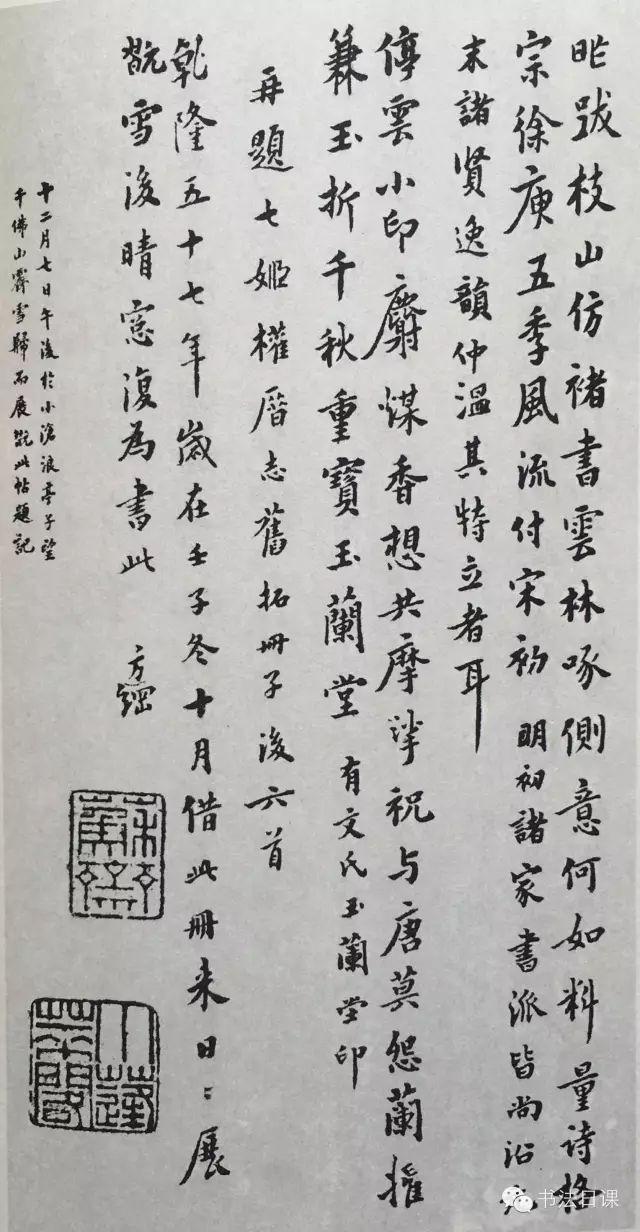 昨跋枝山仿褚書雲林啄側意何如料量詩格
宗徐庾五季風流付宋初 明初諸家書派皆尚沿元
末諸賢逸韻仲溫其特立者耳
停雲小印麝煤香想共摩挲祝与唐莫怨蘭摧
兼玉折千秋重寶玉蘭堂 有文氏玉蘭堂印
再題七姬權厝志舊拓冊子後六首
乾隆五十七年歲在壬子冬十月借此冊来日〻展
翫雪後晴窓復為書此 方綱
十二月七日午後於小滄浪亭子望
千佛山霽雪歸而展翫此帖題記
书法日课